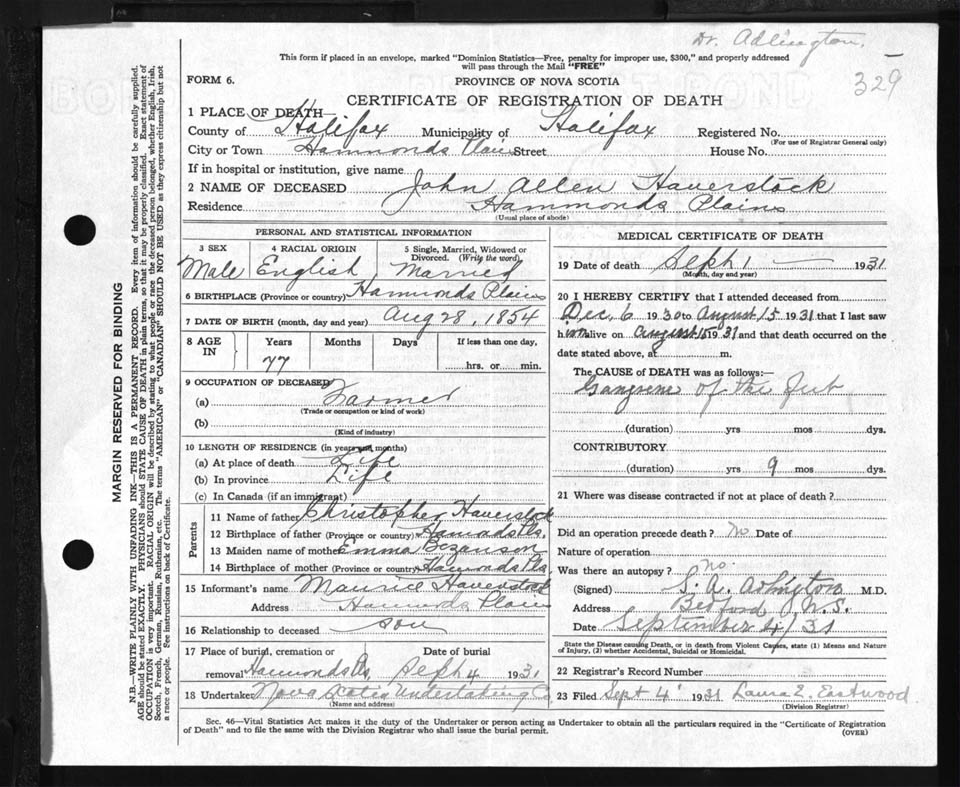 Dr. Adlington.
329
This form if placed in an envelope, marked "Dominion Statistics—Free, penalty for improper use, $300," and properly addressed
will pass through the Mail "FREE"
FORM 6.
PROVINCE OF NOVA SCOTIA
CERTIFICATE OF REGISTRATION OF DEATH
1 PLACE OF DEATH
County of Halifax Municipality of Halifax Registered No.
(For use of Registrar General only)
City or Town Hammonds Plains Street House No.
If in hospital or institution, give name
2 NAME OF DECEASED John Allen Haverstock
Residence Hammonds Plains
(Usual place of abode)
PERSONAL AND STATISTICAL INFORMATION
3 SEX 4 RACIAL ORIGIN 5 Single, Married, Widowed or
Divorced. (Write the word)
Male English Married
6 BIRTHPLACE (Province or country) Hammonds Plains
7 DATE OF BIRTH (month, day and year) Aug 28, 1854
8 AGE IN Years Months Days If less than one day,
77 hrs. or min.
9 OCCUPATION OF DECEASED
(a) Farmer
(Trade or occupation or kind of work)
(b)
(Kind of industry)
10 LENGTH OF RESIDENCE (in years and months)
(a) At place of death Life
(b) In province Life
(c) In Canada (if an immigrant)
Parents
11 Name of father Christopher Haverstock
12 Birthplace of father (Province or country) Hamonds Pls.
13 Maiden name of mother Emma Bezanson
14 Birthplace of mother (Province or country) Hamonds Pls.
15 Informant's name Maurice Haverstock
Address Hammonds Plains
16 Relationship to deceased son
17 Place of burial, cremation or Date of burial
removal Hamonds Ps. Seph 4 1931
18 Undertaker Nova Scotia Undertaking Co
(Name and address)
MEDICAL CERTIFICATE OF DEATH
19 Date of death Seph 1 — 1931
(Month, day and year)
20 I HEREBY CERTIFY that I attended deceased from
Dec, 6 1930 to August 15 1931 that I last saw
him alive on august 15 1931 and that death occurred on the
date stated above, at m.
The CAUSE of DEATH was as follows:
Gangrene of the
(duration) yrs mos dys.
CONTRIBUTORY
(duration) yrs 9 mos dys.
21 Where was disease contracted if not at place of death?
Did an operation precede death? No Date of
Nature of operation
Was there an autopsy? No.
(Signed) S. A. Adlington M.D.
Address Bedford N.S.
Date September 4/31
State the Disease causing Death, or in death from Violent Causes, state (1) Means and Nature
of Injury, (2) whether Accidental, Suicidal or Homicidal.
22 Registrar's Record Number
23 Filed Sept 4 1931 Laura E. Eastwood
(Division Registrar)
Sec. 46—Vital Statistics Act makes it the duty of the Undertaker or person acting as Undertaker to obtain all the particulars required in the "Certificate of Registration
of Death" and to file the same with the Division Registrar who shall issue the burial permit. (OVER)
MARGIN RESERVED FOR BINDING
N.B.—WRITE PLAINLY WITH UNFADING INK—THIS IS A PERMANENT RECORD. Every item of information should be carefully supplied.
AGE should be stated EXACTLY. PHYSICIANS should STATE CAUSE OF DEATH in plain terms, so that it may be properly classified. Exact statement of
OCCUPATION is very important. RACIAL ORIGIN will be described by stating to what people or race the deceased person belonged, whether English, Irish,
Scotch, French, German, Russian, Ruthenian, etc. The terms "AMERICAN" or "CANADIAN" SHOULD NOT BE USED as they express citizenship but not
a race or people. See instructions on back of Certificate.